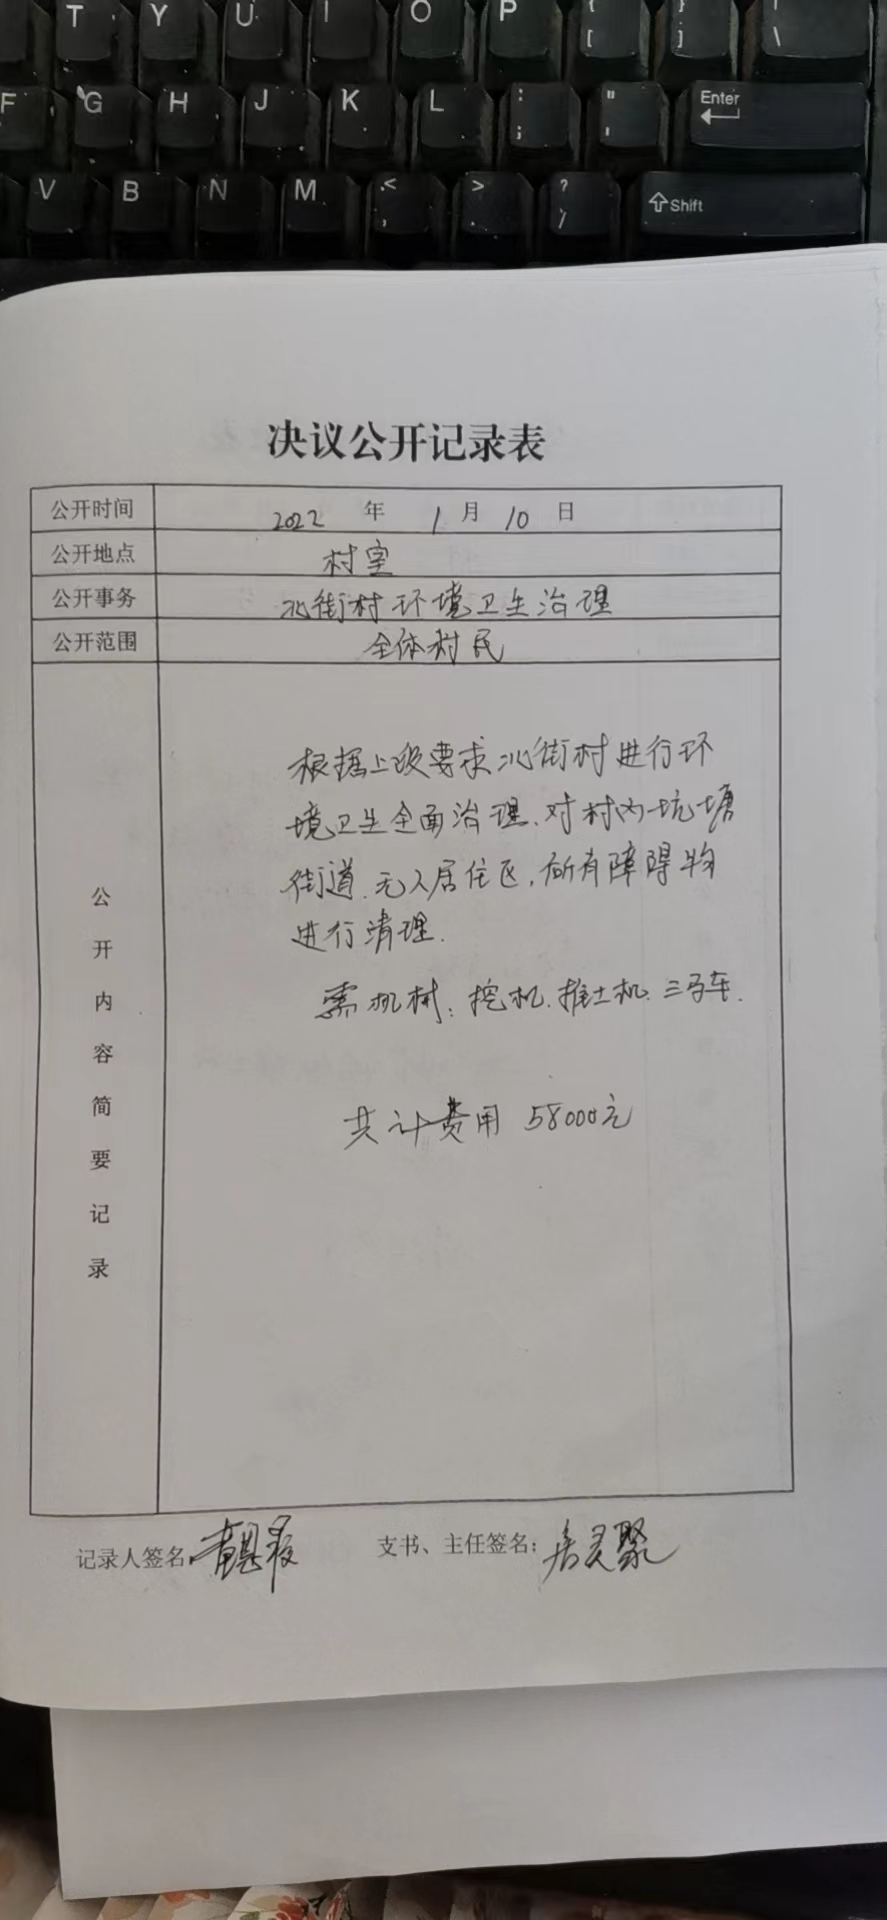 T Y U I O P { [ } ] | \
F G H J K L : ; " ' Enter
V B N M < , > . ? / Shift
决议公开记录表
公开时间 2022 年 1 月 10 日
公开地点 村室
公开事务 北街村环境卫生治理
公开范围 全体村民
公开内容简要记录
根据上级要求北街村进行环
境卫生全面治理、对村内坑塘
街道、无人居住区,所有障碍物
进行清理.
需机械: 挖机、推土机、三马车.
共计费用 58000元
记录人签名:
支书、主任签名: